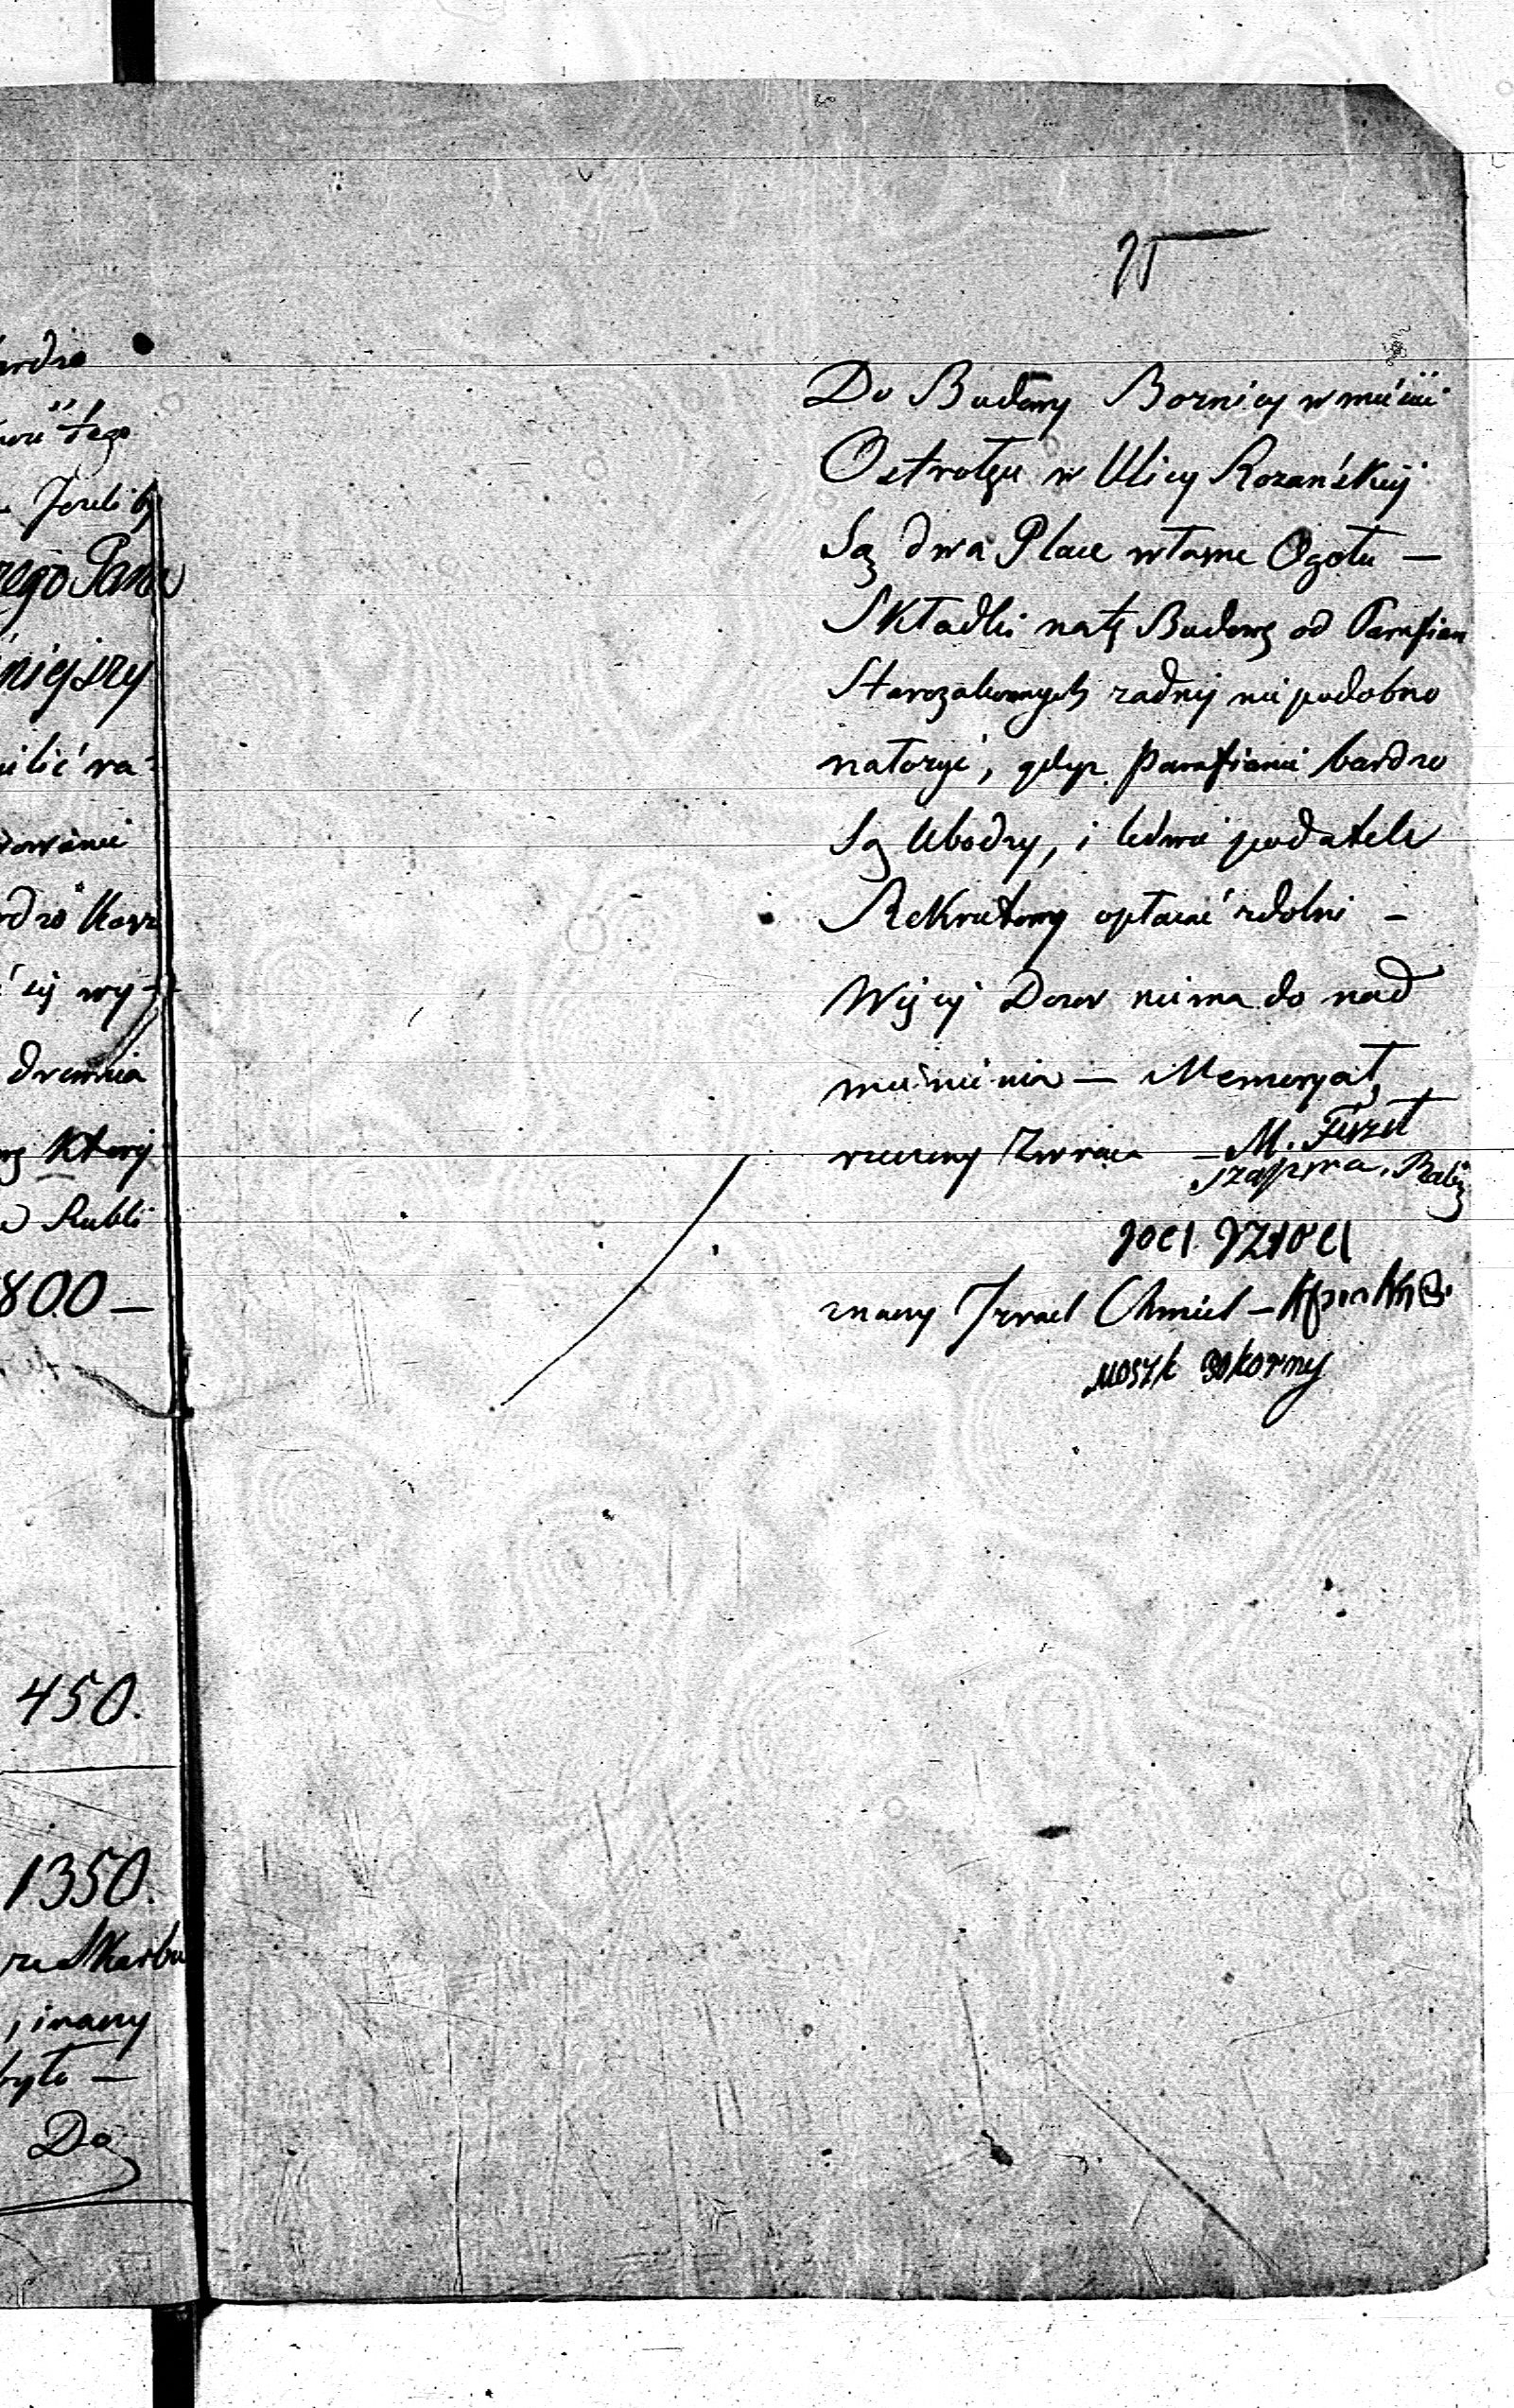 ardzo
tego
Jeżeliby
rego Pana
niejszy
owanie
się wy-
drewnia
Który
Rubli
800 —
450.
1350.
ze Skarbu
było —
Do
Do Budowy Boźnicy w mieście
Ostrołęce w Ulicy Rozańskiej
Są dwa Place własne Ogołu —
Składki natę Budowę od Parafian
Starozakonnych żadnej nie podobno
nałożyć, gdyż Parafianie bardzo
Są Ubodzy, i ledwie podatek
Rekrutowy opłacać zdolni —
Więcej Dozór niema do nad
mienienia — Memoryał
rzeczony Zwraca — M. Fiszel
Szapira, Rabin
znany Izrael Chmiel —
Moszk Pokorny